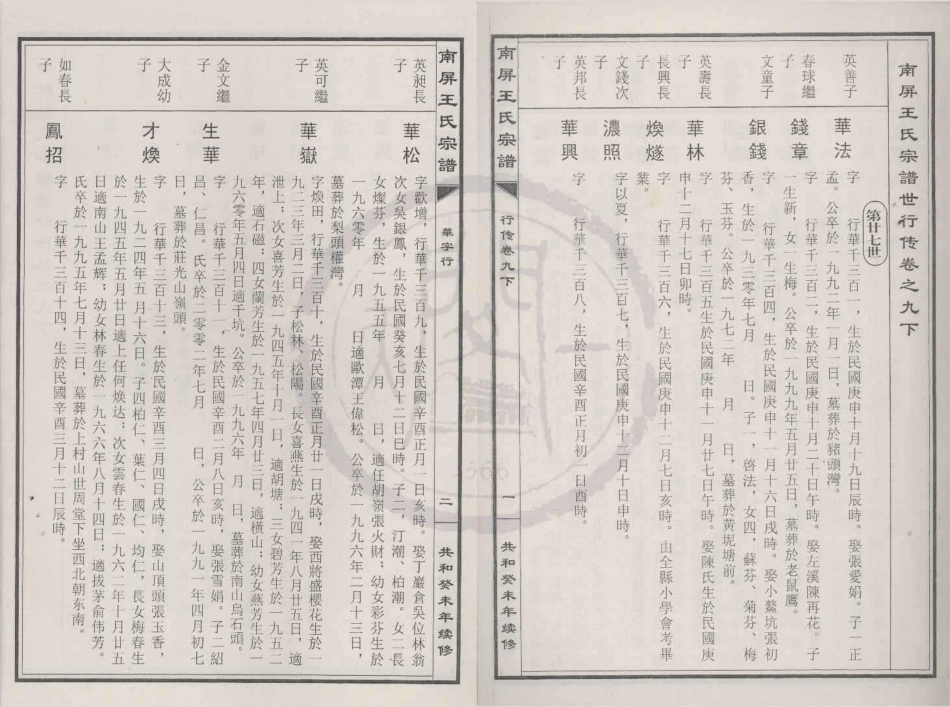 南屏王氏宗譜世行传卷之九下
第廿七世
英善子
華法
字　行華千三百一，生於民國庚申十月十九日辰時。娶張愛娟。子一正
孟。公卒於一九九二年一月一日，墓葬於豬頭灣。
春球繼
子
錢章
字　行華千三百二，生於民國庚申十月二十日午時。娶左溪陳再花。子
一生新，女一生梅。公卒於一九九九年五月廿五日，墓葬於老鼠鷹。
文童子
銀錢
字　行華千三百四，生於民國庚申十一月十六日戌時。娶小鰲坑張初
香，生於一九三零年七月　日。子一，啓法，女四，蘇芬、菊芬、梅
芬、玉芬。公卒於一九七二年　月　日，墓葬於黄坭塘前。
英壽長
子
華林
字　行華千三百五生於民國庚申十一月廿七日午時。娶陳氏生於民國庚
申十二月十七日卯時。
長興長
子
煥燧
字　行華千三百六，生於民國庚申十二月七日亥時。山全縣小學會考畢
業。
文錢次
子
濃照
字以夏，行華千三百七，生於民國庚申十二月十日申時。
英邦長
子
華興
字　行華千三百八，生於民國辛酉正月初一日酉時。
南屏王氏宗譜
行传卷九下
一
共和癸未年续修
南屏王氏宗譜
華字行
二
共和癸未年续修
英昶長
子
華松
字歡增，行華千三百九，生於民國辛酉正月一日亥時。娶丁巖倉吳位林翁
次女吳銀鳳，生於民國癸亥七月十二日巳時。子二，汀潮、柏潮。女二長
女燦芬，生於一九五五年　月　日，適任胡嶺張火財；幼女彩芬生於
一九六零年　月　日適歐潭王偉松。公卒於一九九六年二月十三日，
墓葬於梨頭權灣。
英可繼
子
華嶽
字煥田，行華千三百十，生於民國辛酉正月廿一日戌時，娶西將盛櫻花生於一
九二三年三月二日，子松林、松陽。長女喜燕生於一九四一年八月廿五日，適
泄上；次女喜芳生於一九四五年十月一日，適胡塘；三女碧芳生於一九五二
年，適石磁；四女蘭芳生於一九五七年四月廿三日，適橫山；幼女燕芳生於一
九六零年五月四日適千坑。公卒於一九九六年　月　日，墓葬於南山烏石頭。
金文繼
子
生華
字　行華千三百十一，生於民國辛酉二月八日亥時，娶張雪娟。子二紹
昌、仁昌。氏卒於二零零二年七月　日，公卒於一九九一年四月初七
日，墓葬於莊光山嶺頭。
大成幼
子
才煥
字　行華千三百十三，生於民國辛酉三月四日戌時，娶山頂頭張玉香，
生於一九二四年五月十六日。子四柏仁、葉仁、國仁、均仁，長女梅春生
於一九四五年五月廿日適上任何煥达；次女雲春生於一九六二年十月廿五
日適南山王孟輝；幼女林春生於一九六六年八月十四日；適拔茅俞伟芳。
氏卒於一九九五年七月十三日，墓葬於上村山世周堂下坐西北朝东南。
如春長
子
鳳招
字　行華千三百十四，生於民國辛酉三月十二日辰時。